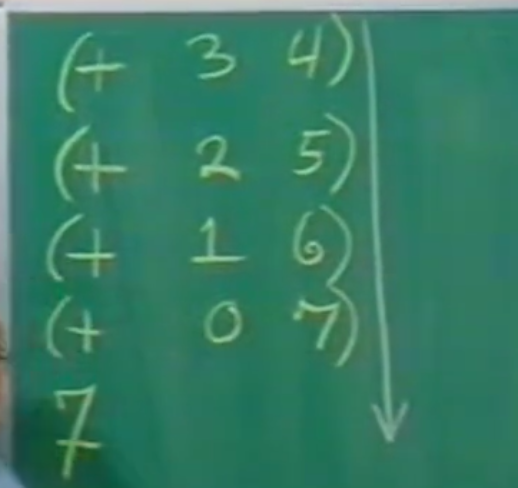 (+ 3 4)
(+ 2 5)
(+ 1 6)
(+ 0 7)
7